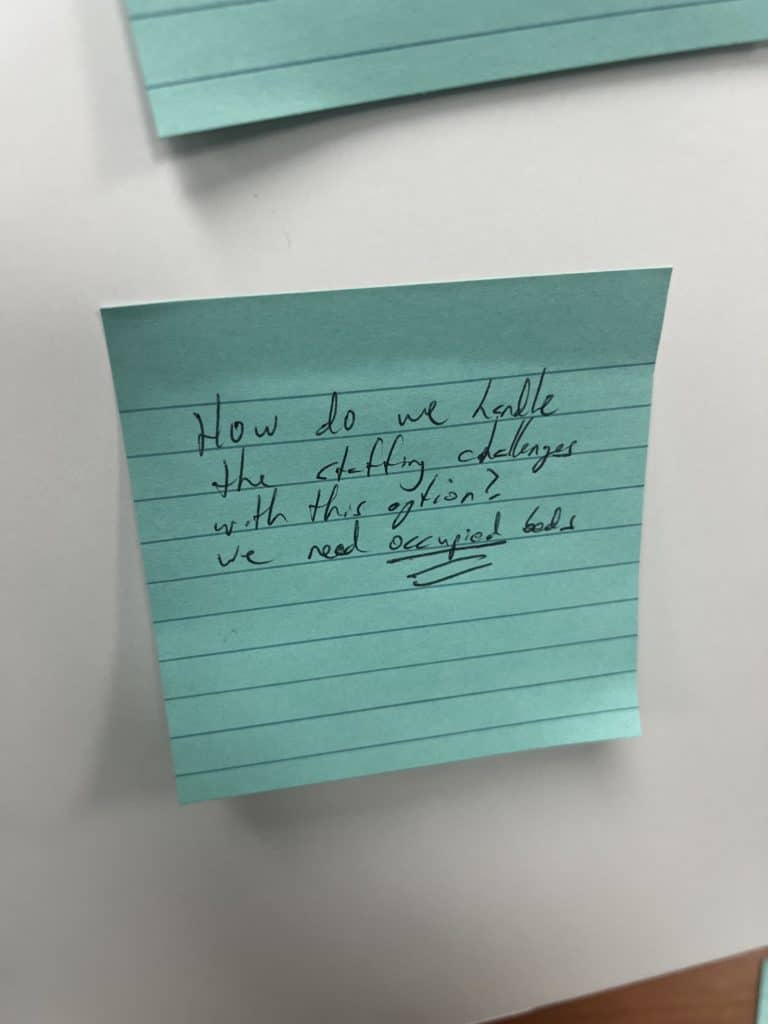 How do we handle
the staffing challenges
with this option?
we need occupied beds